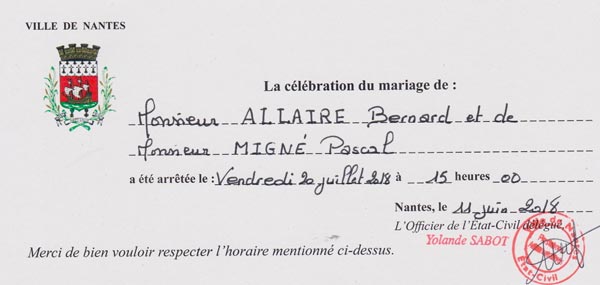 VILLE DE NANTES
La célébration du mariage de :
Monsieur ALLAIRE Bernard et de
Monsieur MIGNÉ Pascal
a été arrêtée le : Vendredi 20 juillet 2018 à 15 heures 00
Nantes, le 11 juin 2018
L'Officier de l'État-Civil délégué,
Yolande SABOT
Ville de Nantes
État-Civil
Merci de bien vouloir respecter l'horaire mentionné ci-dessus.